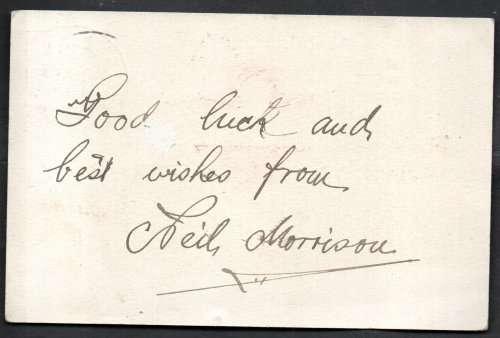 Good luck and
best wishes from
Neil Morrison